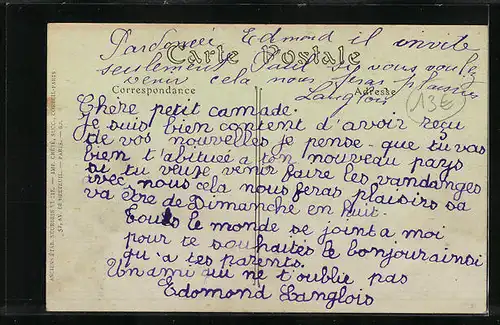 Pardonée Edmond il invite
seulement Paul si vous voulé
venir cela nous feras plaisirs
Langlois
Carte Postale
Correspondance
Adresse
13€
Chère petit camade.
Je suis bien content d'avoir reçu
de vos nouvelles je pense que tu vas
bien t'abituée a ton nouveau pays
si tu veuse venir faire les vandanges
avec nous cela nous feras plaisirs sa
va être de Dimanche en huit.
Touts le monde se joint a moi
pour te souhaités le bonjour ainsi
qu'a tes parents.
Un ami qui ne t'oublie pas
Edomond Langlois